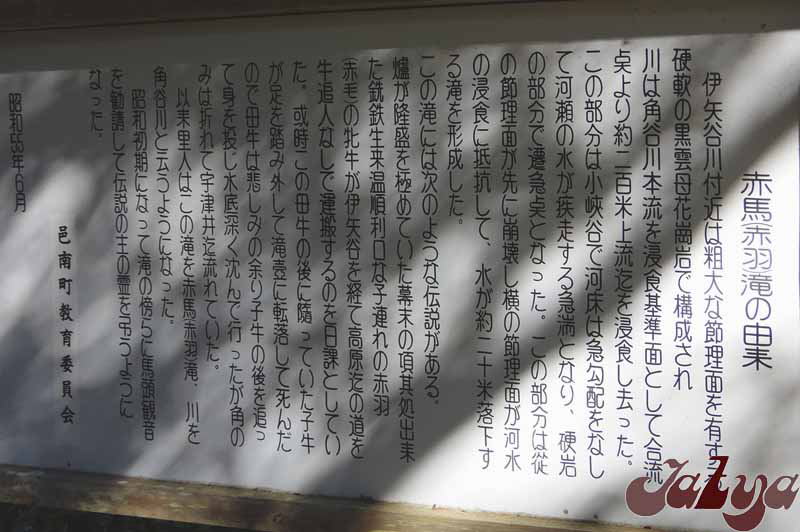 赤馬赤羽滝の由来
伊矢谷川付近は粗大な節理面を有する
硬軟の黒雲母花崗岩で構成され
川は角谷川本流を浸食基準面として合流
点より約二百米上流迄を浸食し去った。
この部分は小峡谷で河床は急勾配をなし
て河瀬の水が疾走する急湍となり、硬岩
の部分で遷急点となった。この部分は従
の節理面が先に崩壊し横の節理面が河水
の浸食に抵抗して、水が約二十米落下す
る滝を形成した。
この滝には次のような伝説がある。
爐が隆盛を極めていた幕末の頃其処出来
た銑鉄生来温順利口な子連れの赤羽
赤毛の牝牛が伊矢谷を経て高原迄の道を
牛追人なしで運搬するのを日課としてい
た。或時この母牛の後に随っていた子牛
が足を踏み外して滝壺に転落して死んだ
ので母牛は悲しみの余り子牛の後を追っ
て身を投じ水底深く沈んで行ったが角の
みは折れて宇津井迄流れていた。
以来里人はこの滝を赤馬赤羽滝、川を
角谷川と云うようになった。
昭和初期になって滝の傍らに馬頭観音
を勧請して伝説の主の霊を弔うように
なった。
昭和58年6月
邑南町教育委員会
JaLya